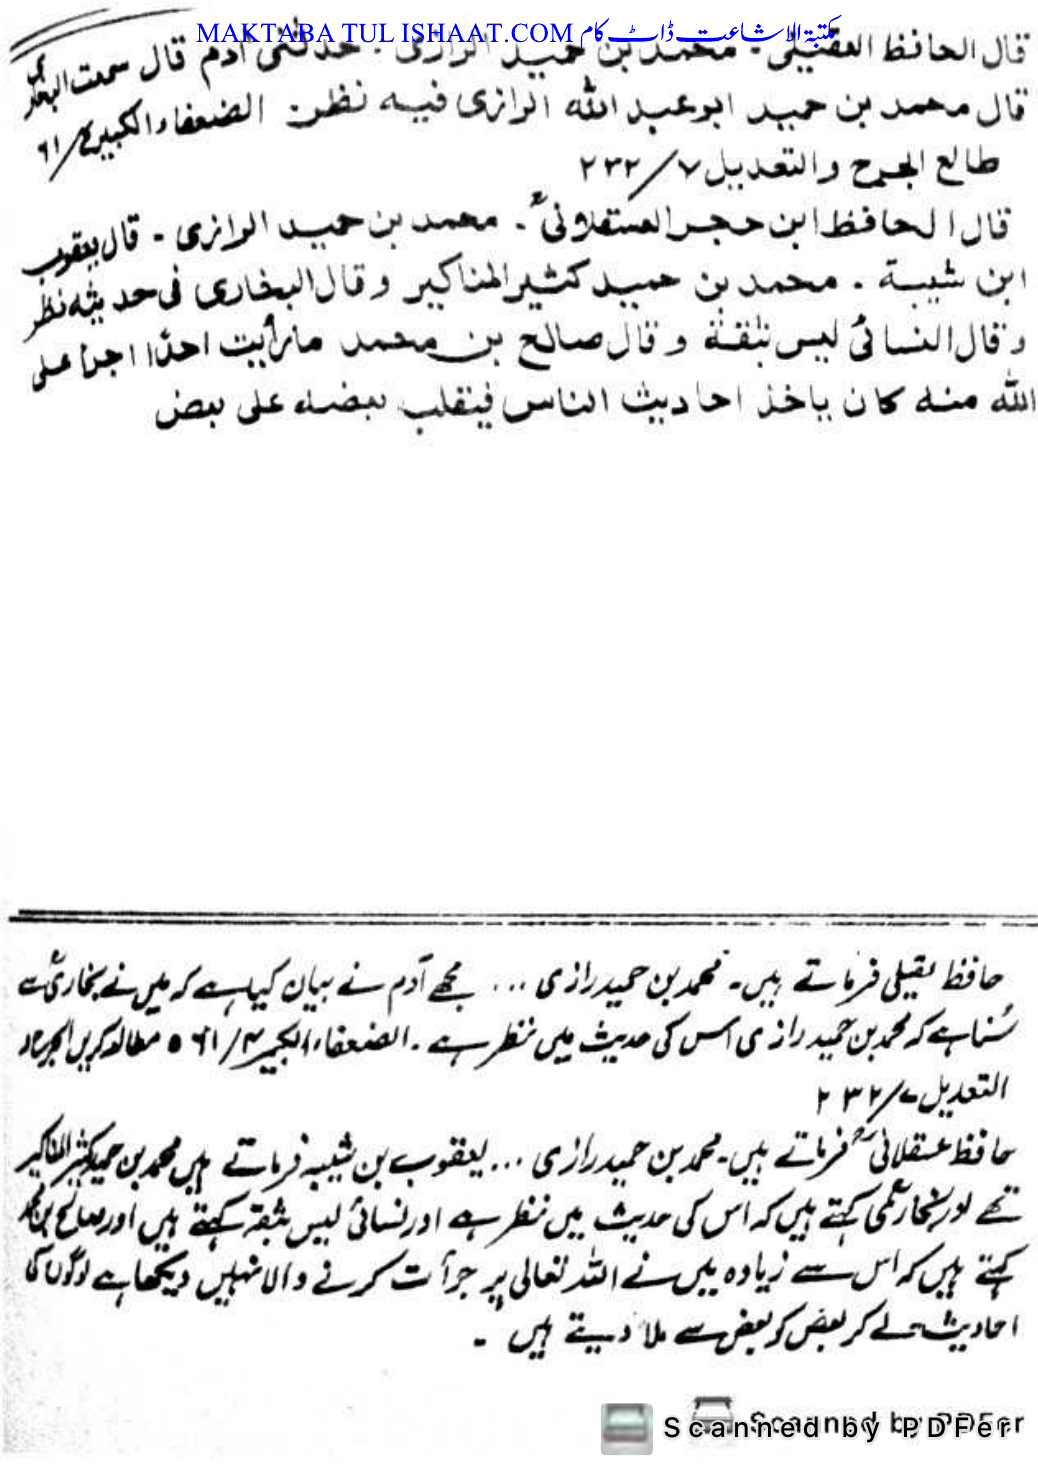 MAKTABA TUL ISHAAT.COM مکتبۃ الاشاعت ڈاٹ کام
قال الحافظ العقیلی - محمد بن حمید الرازی - حدثنی آدم قال سمعت البخاری
قال محمد بن حمید ابو عبد اللہ الرازی فیہ نظر - الضعفاء الکبیر ۴/۶۱
طالع الجرح والتعدیل ۷/۲۳۲
قال الحافظ ابن حجر العسقلانیؒ - محمد بن حمید الرازی - قال یعقوب
ابن شیبة - محمد بن حمید کثیر المناکیر وقال البخاری فی حدیثه نظر
وقال النسائی لیس بثقة وقال صالح بن محمد ما رأیت احدًا اجرأ علی
اللہ منه کان یاخذ احادیث الناس فینقلب بعضه علی بعض
حافظ عقیلی فرماتے ہیں - محمد بن حمید رازی ... مجھے آدم نے بیان کیا ہے کہ میں نے بخاریؒ سے
سُنا ہے کہ محمد بن حمید رازی اس کی حدیث میں نظر ہے - الضعفاء الکبیر ۴/۶۱ • مطالعہ کریں الجرح و
التعدیل ۷/۲۳۲
حافظ عسقلانیؒ فرماتے ہیں - محمد بن حمید رازی ... یعقوب بن شیبہ فرماتے ہیں محمد بن حمید کثیر المناکیر
تھے اور بخاریؒ کہتے ہیں کہ اس کی حدیث میں نظر ہے اور نسائی لیس بثقة کہتے ہیں اور صالح بن محمد
کہتے ہیں کہ اس سے زیادہ میں نے اللہ تعالی پر جرأت کرنے والا نہیں دیکھا ہے لوگوں کی
احادیث لے کر بعض کو بعض سے ملا دیتے ہیں -
Scanned by PDFer
Scanned by PDFer